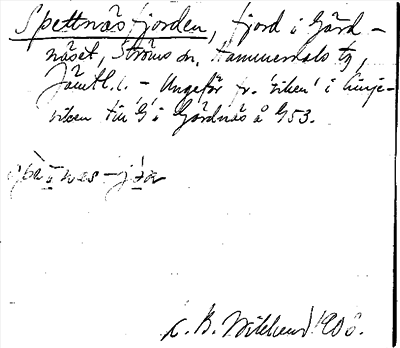 Spettnäsfjorden, fjord i Gård-
näset, Ströms sn, Hammerdals tg,
Jämtl. l. – Ungefär fr. 'viken' i Linje-
viken till 'G' i Gårdnäs å G53.
K. B. Wiklund 1908.